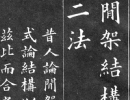 間架結構
二法
昔人論間架
式論結構
茲比而合